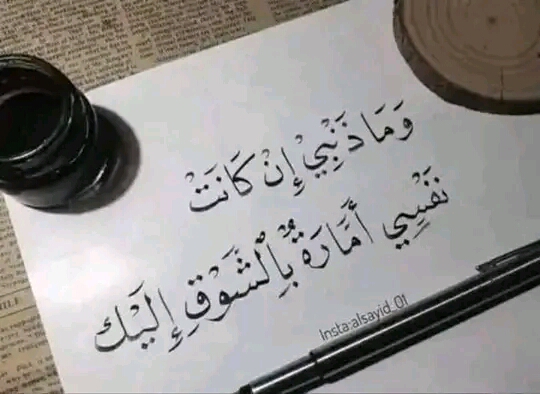 وَمَا ذَنْبِي إِنْ كَانَتْ
نَفْسِي أَمَّارَةٌ بِالْشَوْقِ إِلَيْك
Insta:alsayid_01